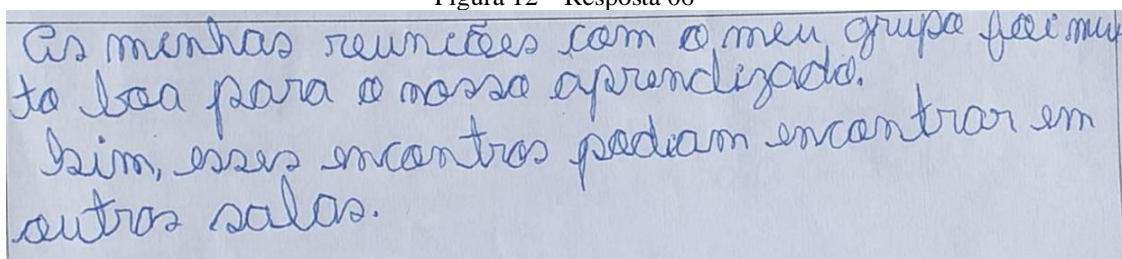 Figura 12 – Resposta 06
As minhas reunições com o meu grupo foi mui
to boa para o nosso aprendizado.
Sim, esses encontros podiam encontrar em
outras salas.